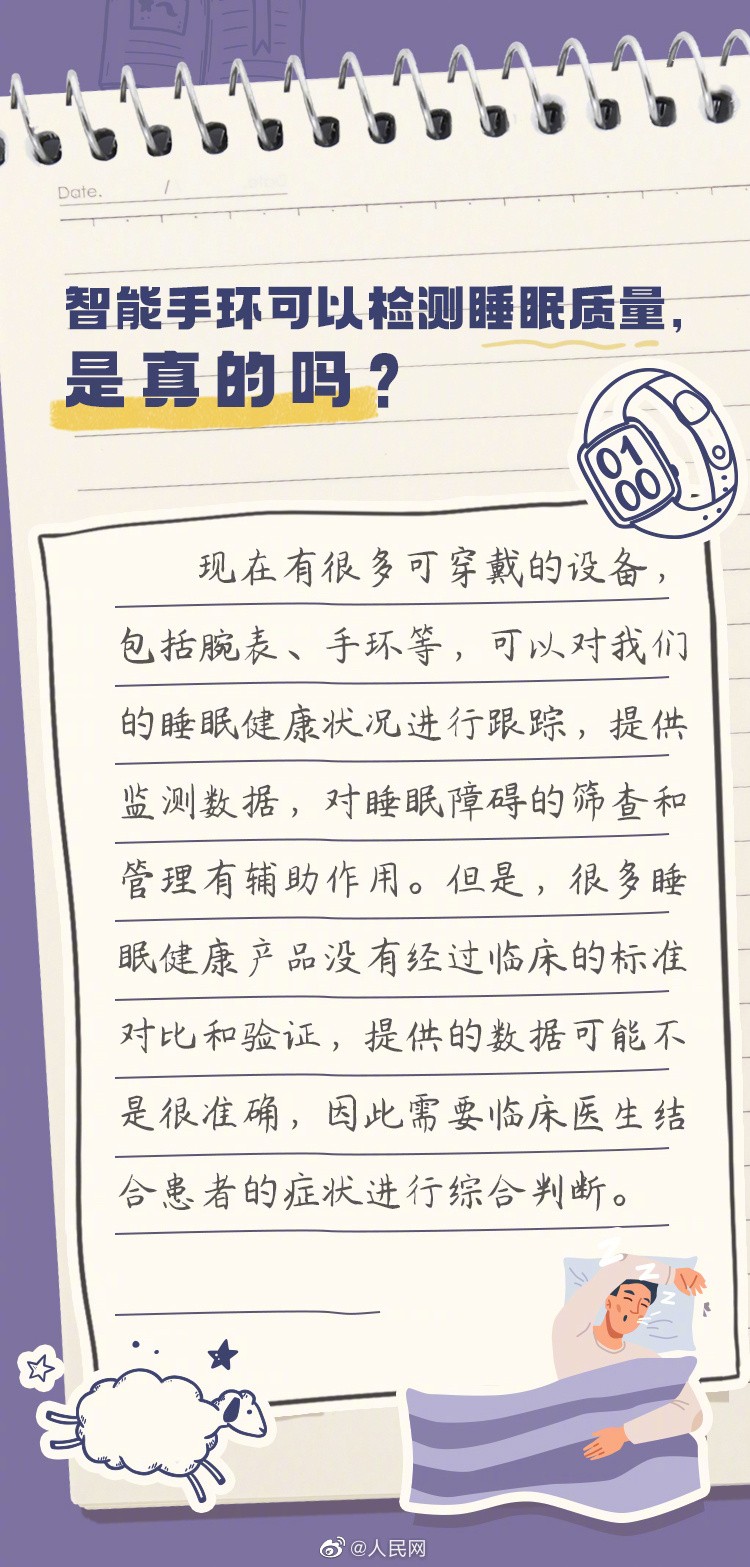 Date. /
智能手环可以检测睡眠质量，
是真的吗？
01
00
现在有很多可穿戴的设备，
包括腕表、手环等，可以对我们
的睡眠健康状况进行跟踪，提供
监测数据，对睡眠障碍的筛查和
管理有辅助作用。但是，很多睡
眠健康产品没有经过临床的标准
对比和验证，提供的数据可能不
是很准确，因此需要临床医生结
合患者的症状进行综合判断。
z
z
z
@人民网